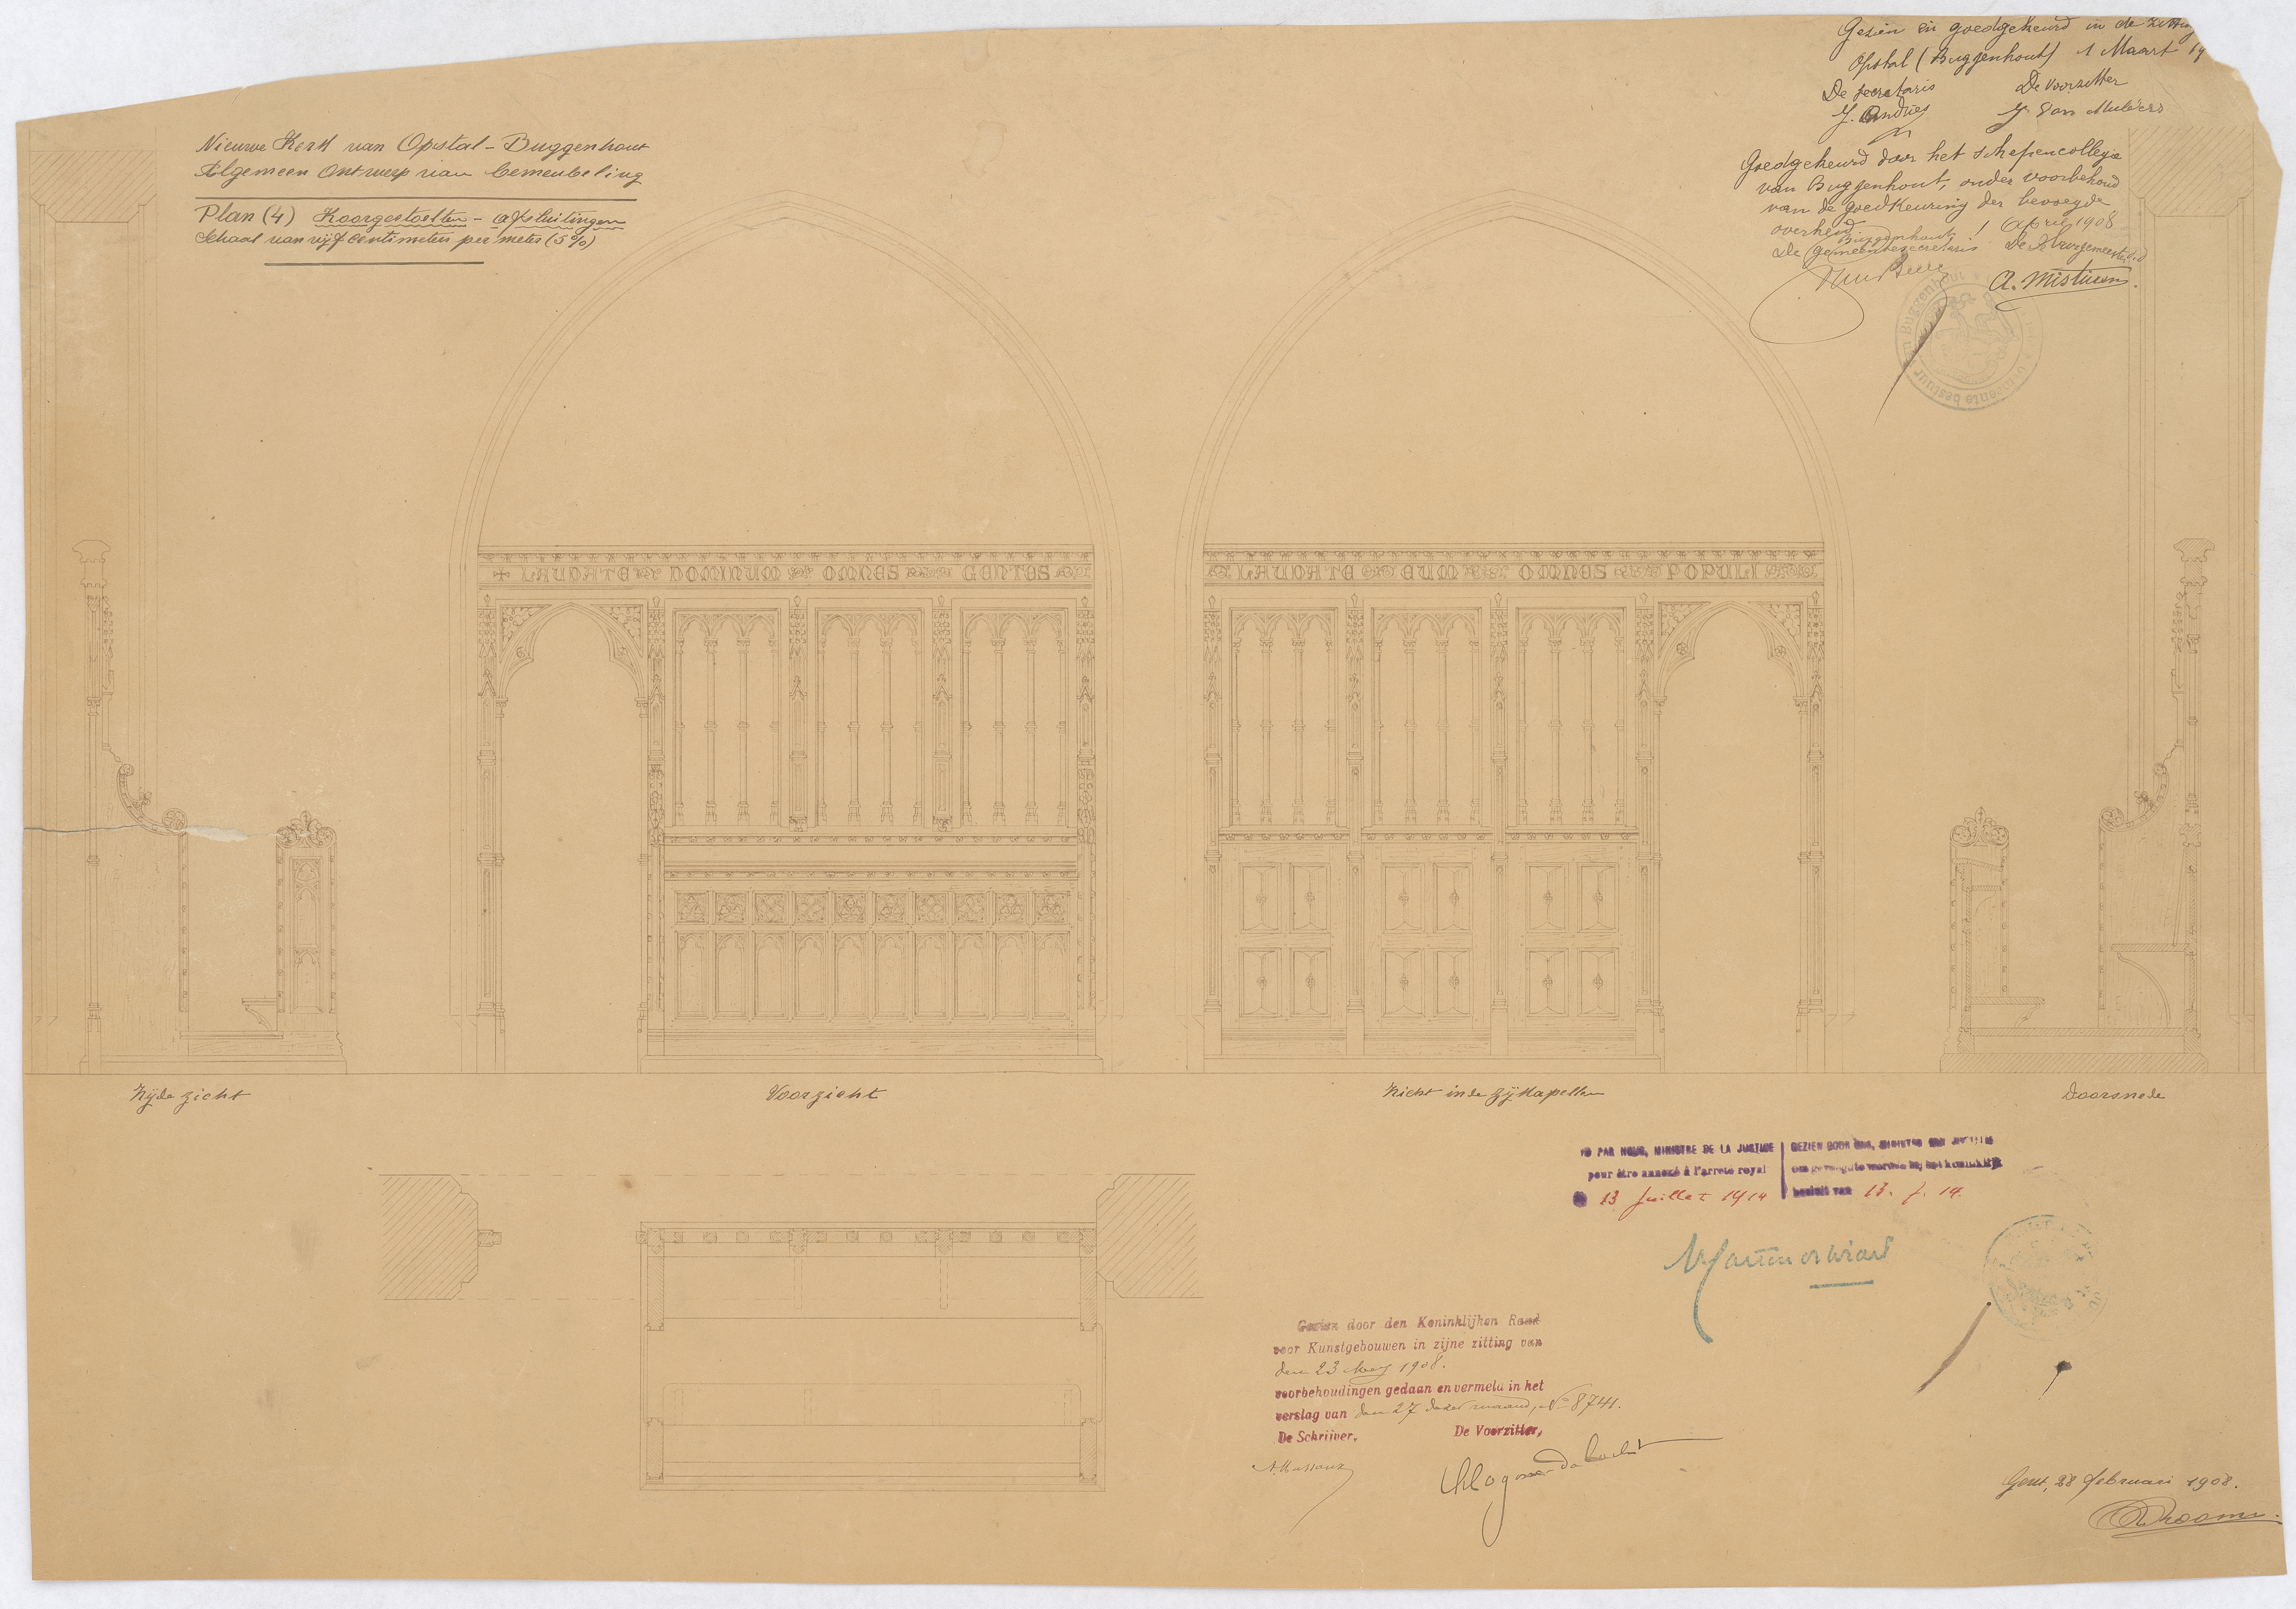 Nieuwe Kerk van Opstal-Buggenhout
Algemeen Ontwerp van bemeubeling
Plan (4) Koorgestoelten - afsluitingen
Schaal van vijf centimeters per meter (5%)
Gezien en goedgekeurd in de zitting
Opstal (Buggenhout) 1 Maart 19
De secretaris De Voorzitter
J. Andries
Goedgekeurd door het schepencollegie
van Buggenhout, onder voorbehoud
van de goedkeuring der bevoegde
overheid.
Buggenhout 1 April 1908
De gemeentesecretaris De Burgemeester
Buggenhout
Gemeente bestuur
✠ LAUDATE DOMINUM OMNES GENTES
LAUDATE EUM OMNES POPULI
Zijde zicht
Voorzicht
Zicht in de zijkapellen
Doorsnede
VU PAR NOUS, MINISTRE DE LA JUSTICE
pour être annexé à l'arrêté royal
13 Juillet 1914
GEZIEN DOOR ONS, MINISTER VAN JUSTITIE
om gevoegd te worden bij het koninklijk
besluit van 13. 7. 14.
Gezien door den Koninklijken Raad
voor Kunstgebouwen in zijne zitting van
den 23 Mey 1908.
voorbehoudingen gedaan en vermeld in het
verslag van den 27 dezer maand, No 8741.
De Schrijver, De Voorzitter,
Gent, 28 februari 1908.